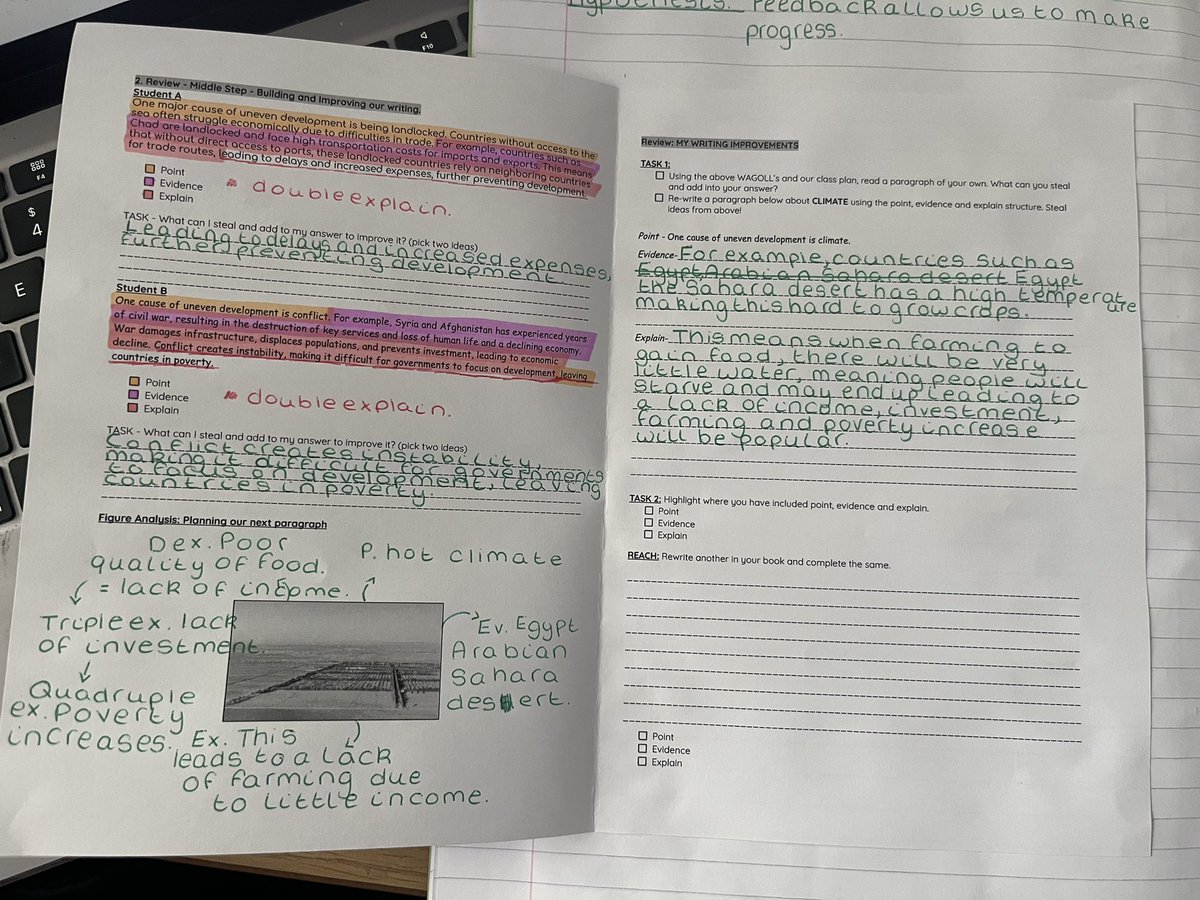 Hypothesis. Feedback allows us to make
progress.
F10
F4
$
4
E
2. Review - Middle Step - Building and Improving our writing.
Student A
One major cause of uneven development is being landlocked. Countries without access to the
sea often struggle economically due to difficulties in trade. For example, countries such as
Chad are landlocked and face high transportation costs for imports and exports. This means
that without direct access to ports, these landlocked countries rely on neighboring countries
for trade routes, leading to delays and increased expenses, further preventing development.
Point
Evidence
Explain
* double explain.
TASK - What can I steal and add to my answer to improve it? (pick two ideas)
Leading to delays and increased expenses,
further preventing development.
Student B
One cause of uneven development is conflict. For example, Syria and Afghanistan has experienced years
of civil war, resulting in the destruction of key services and loss of human life and a declining economy.
War damages infrastructure, displaces populations, and prevents investment, leading to economic
decline. Conflict creates instability, making it difficult for governments to focus on development, leaving
countries in poverty.
Point
Evidence
Explain
* double explain.
TASK - What can I steal and add to my answer to improve it? (pick two ideas)
Conflict creates instability,
making it difficult for governments
to focus on development, leaving
countries in poverty.
Figure Analysis: Planning our next paragraph
Dex. Poor
quality of food.
= lack of income.
P. hot climate
Triple ex. lack
of investment.
Quadruple
ex. Poverty
increases.
Ev. Egypt
Arabian
Sahara
desert.
Ex. This
leads to a lack
of farming due
to little income.
Review: MY WRITING IMPROVEMENTS
TASK 1:
Using the above WAGOLL's and our class plan, read a paragraph of your own. What can you steal
and add into your answer?
Re-write a paragraph below about CLIMATE using the point, evidence and explain structure. Steal
ideas from above!
Point - One cause of uneven development is climate.
Evidence- For example, countries such as
Egypt Arabian Sahara desert Egypt
the Sahara desert has a high temperature
making this hard to grow crops.
Explain- This means when farming to
gain food, there will be very
little water, meaning people will
starve and may end up leading to
a lack of income, investment,
farming and poverty increase
will be popular.
TASK 2: Highlight where you have included point, evidence and explain.
Point
Evidence
Explain
REACH: Rewrite another in your book and complete the same.
Point
Evidence
Explain